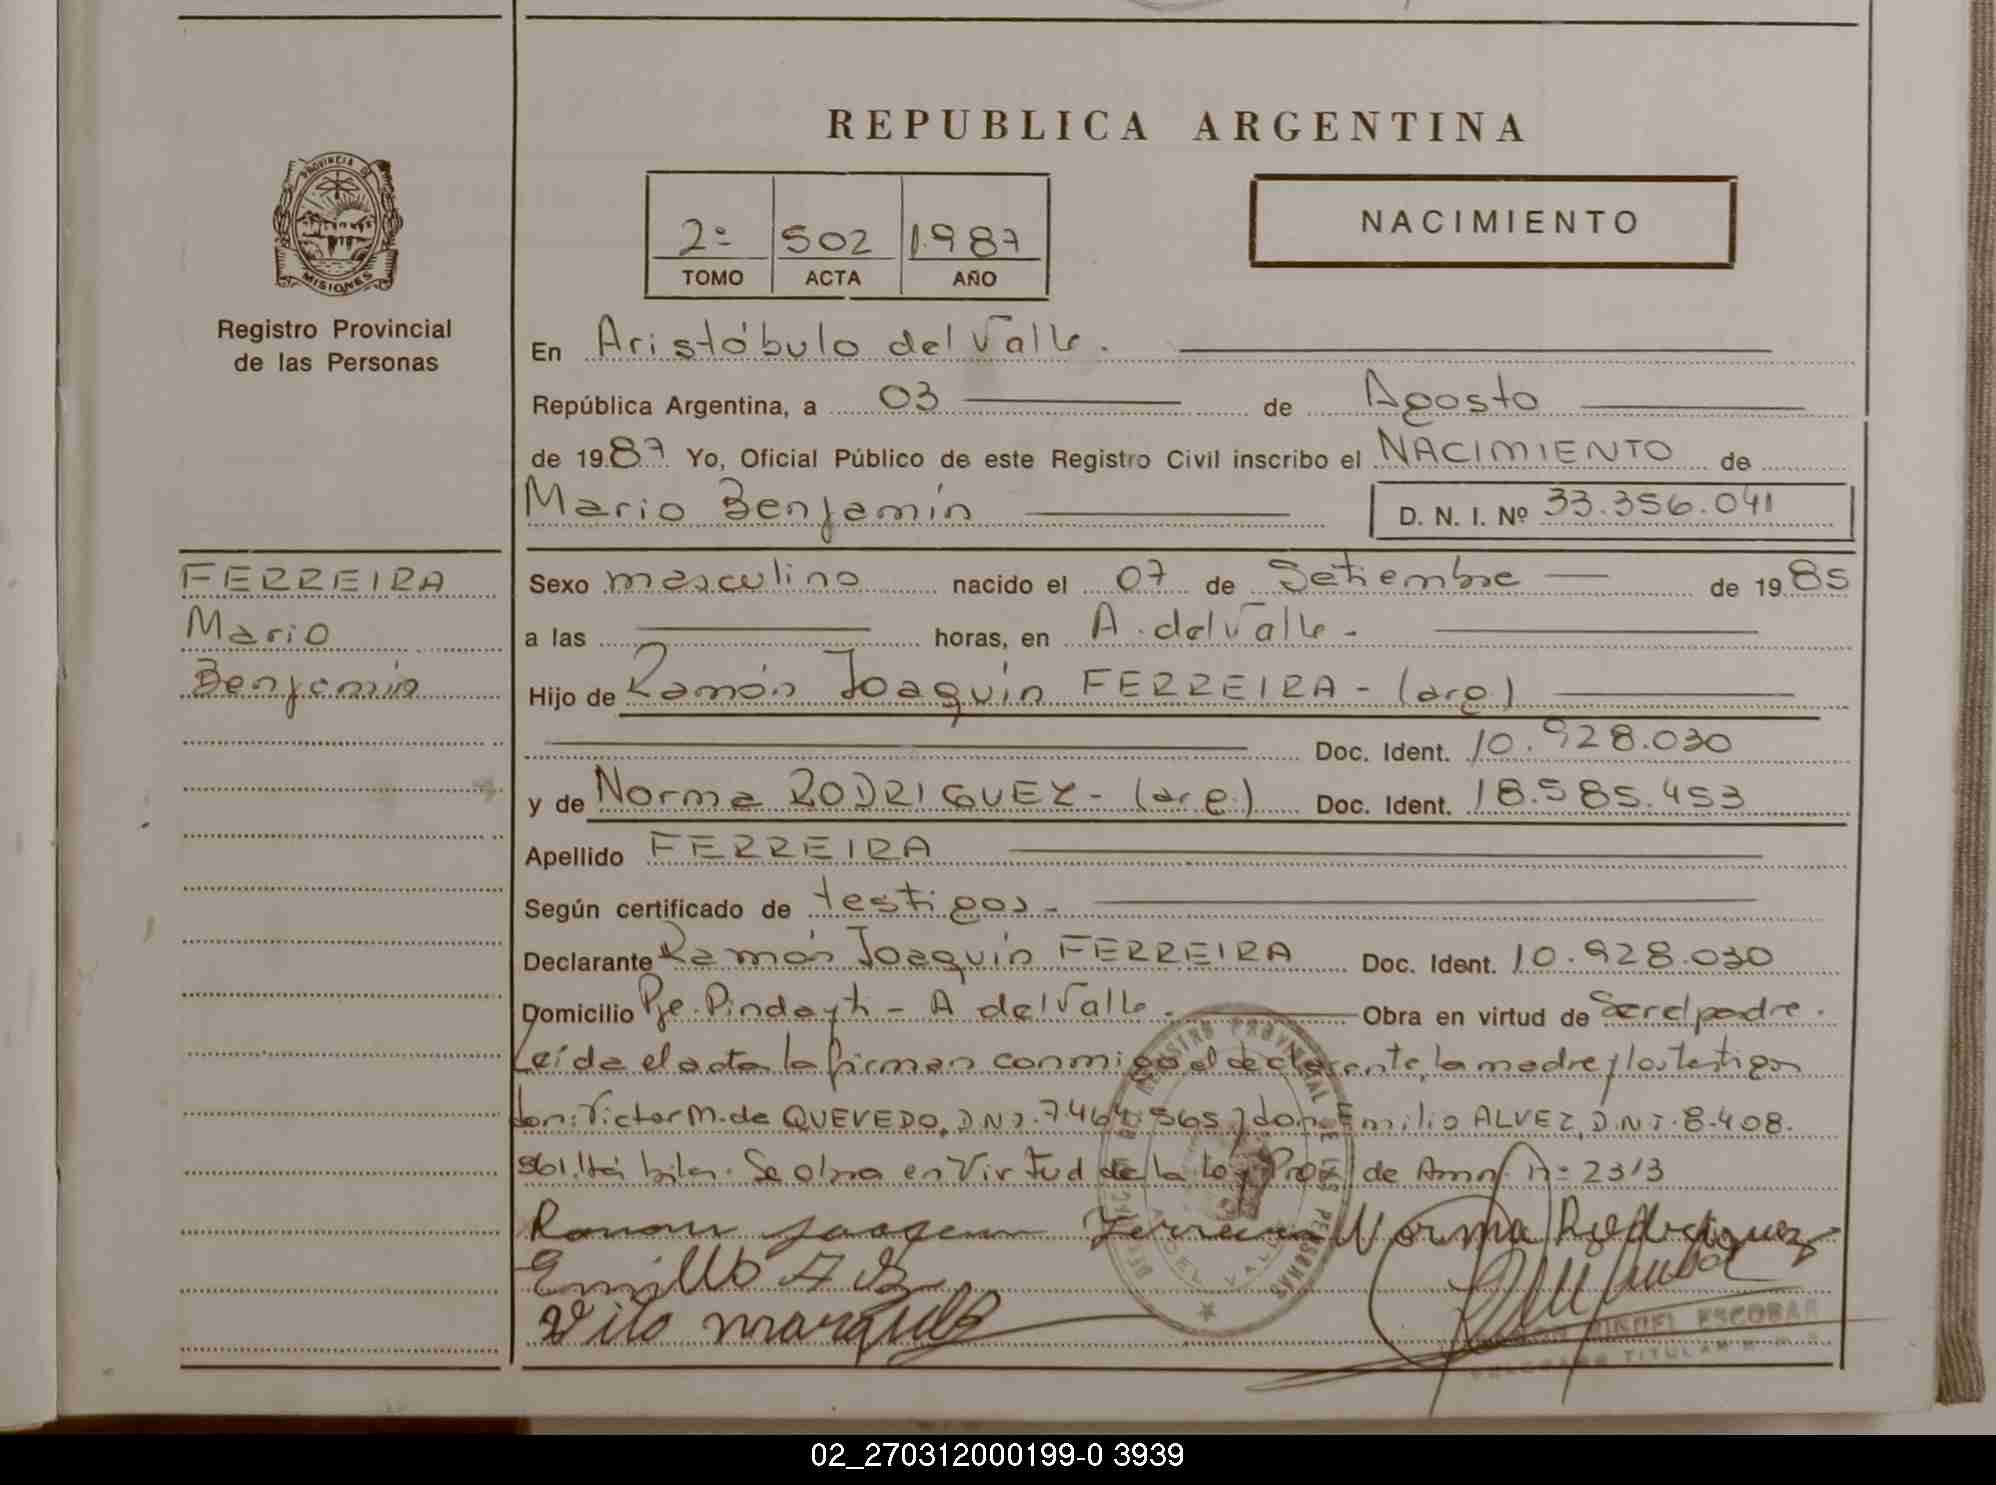 REPUBLICA ARGENTINA
PROVINCIA DE
MISIONES
Registro Provincial
de las Personas
2º 502 1.987
TOMO ACTA AÑO
NACIMIENTO
En Aristóbulo del Valle.
República Argentina, a 03 de Agosto
de 1987 Yo, Oficial Público de este Registro Civil inscribo el NACIMIENTO de
Mario Benjamín D. N. I. Nº 33.356.041
FERREIRA
Mario
Benjamín
Sexo masculino nacido el 07 de Setiembre de 1985
a las horas, en A. del Valle -
Hijo de Ramón Joaquín FERREIRA - (arg.)
Doc. Ident. 10.928.030
y de Norma RODRIGUEZ - (arg.) Doc. Ident. 18.585.453
Apellido FERREIRA
Según certificado de testigos -
Declarante Ramón Joaquín FERREIRA Doc. Ident. 10.928.030
Domicilio Pje. Pindayti - A del Valle. Obra en virtud de Ser el padre.
Leída el acta la firman conmigo el declarante, la madre y los testigos
don: Victor M. de QUEVEDO, D.N.I. 7.464.565 y don Emilio ALVEZ, D.N.I. 8.408.
Se obra en Virtud de la Ley Prov. de Amn. nº 2313
Ramon Joaquin Ferreira Norma Rodriguez
Emilio
Vito
ESCOBAR
TITULAR
REGISTRO PROVINCIAL DE LAS PERSONAS
02_270312000199-0 3939